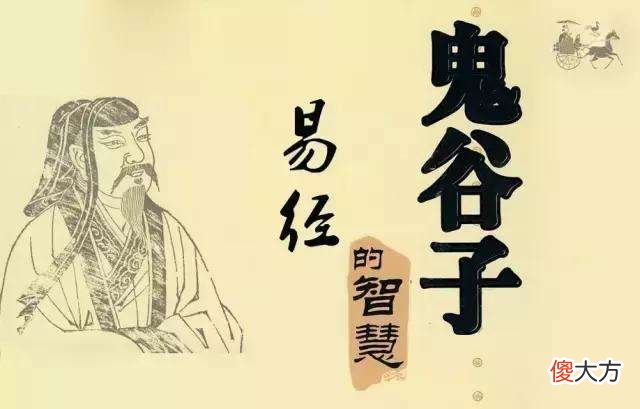 鬼谷子
易经
的智慧
傻大方